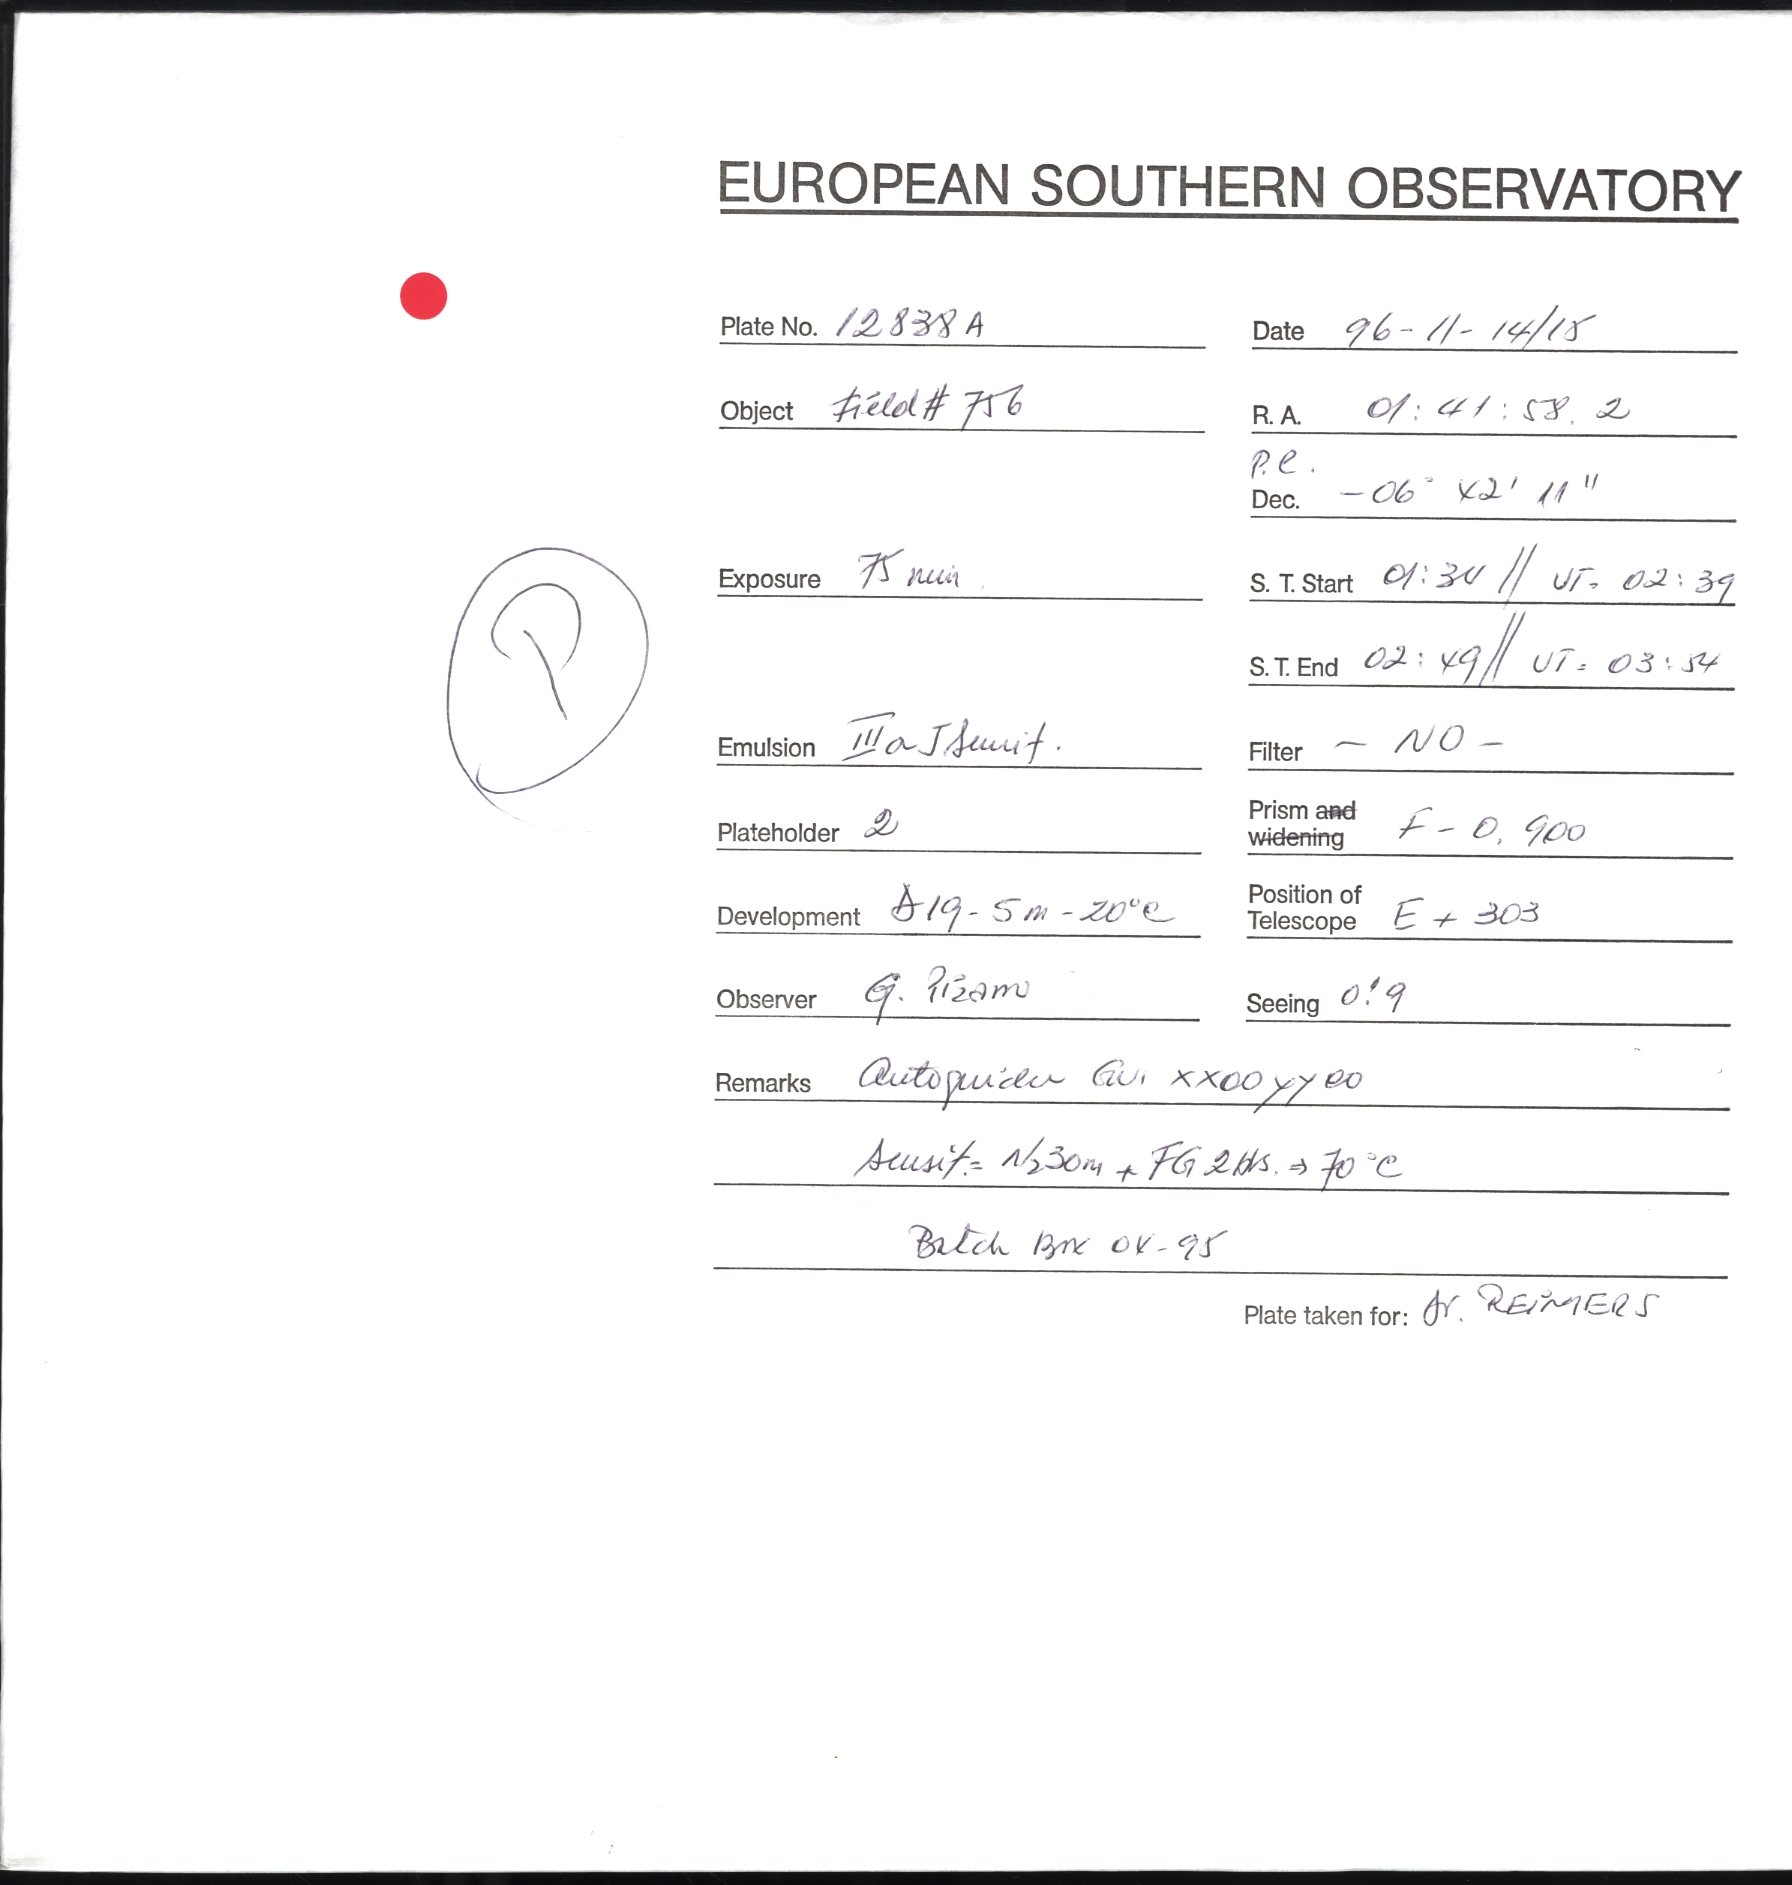 EUROPEAN SOUTHERN OBSERVATORY
Plate No. 12838 A
Date 96-11-14/15
Object Field # 756
R. A. 01: 41: 58. 2
P.C.
Dec. -06° 42' 11"
Exposure 75 min
S. T. Start 01:34 // UT= 02:39
S. T. End 02:49 // UT= 03:54
P
Emulsion III a J Sensit.
Filter - NO -
Plateholder 2
Prism and widening F - 0. 900
Development D19 - 5m - 20°C
Position of Telescope E + 303
Observer G. Pizarro
Seeing 0!9
Remarks Autoguider xx00yy00
Sensit.= N2 30m + FG 2Hs. ⇒ 70°C
Batch Box 04-95
Plate taken for: Dr. REIMERS